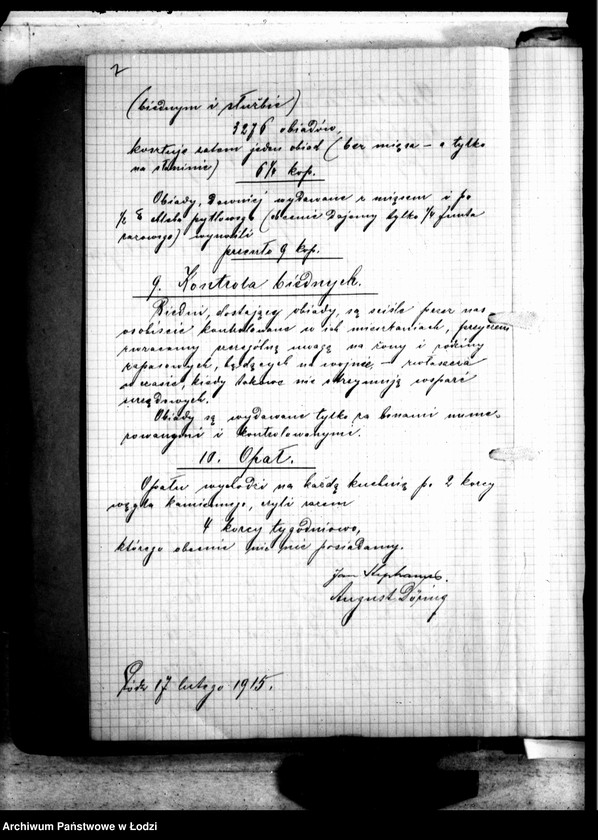 2
(biednym i służbie)
3276 obiadów,
kosztuje zatem jeden obiad (bez mięsa – a tylko
na słoninie) 6¼ kop.
Obiady, dawniej wydawane z mięsem i po
½ chleba pytlowego (obecnie dajemy tylko ¼ funta
razowego) wynosiły
przeszło 9 kop.
9. Kontrola biednych.
Biedni, dostający obiady, są ściśle przez nas
osobiście kontrolowane w ich mieszkaniach, przyczem
zwracamy szczególną uwagę na żony i rodziny
zapasowych, będących na wojnie, – zwłaszcza
w czasie, kiedy takowe nie otrzymują wsparć
urzędowych.
Obiady są wydawane tylko za bonami nume-
rowanymi i kontrolowanymi.
10. Opał.
Opału wychodzi na każdą kuchnię po 2 korcy
węgla kamiennego, czyli razem
4 korcy tygodniowo,
którego obecnie nic nie posiadamy.
Jan
August Döring
Łódź 17 lutego 1915.
Archiwum Państwowe w Łodzi